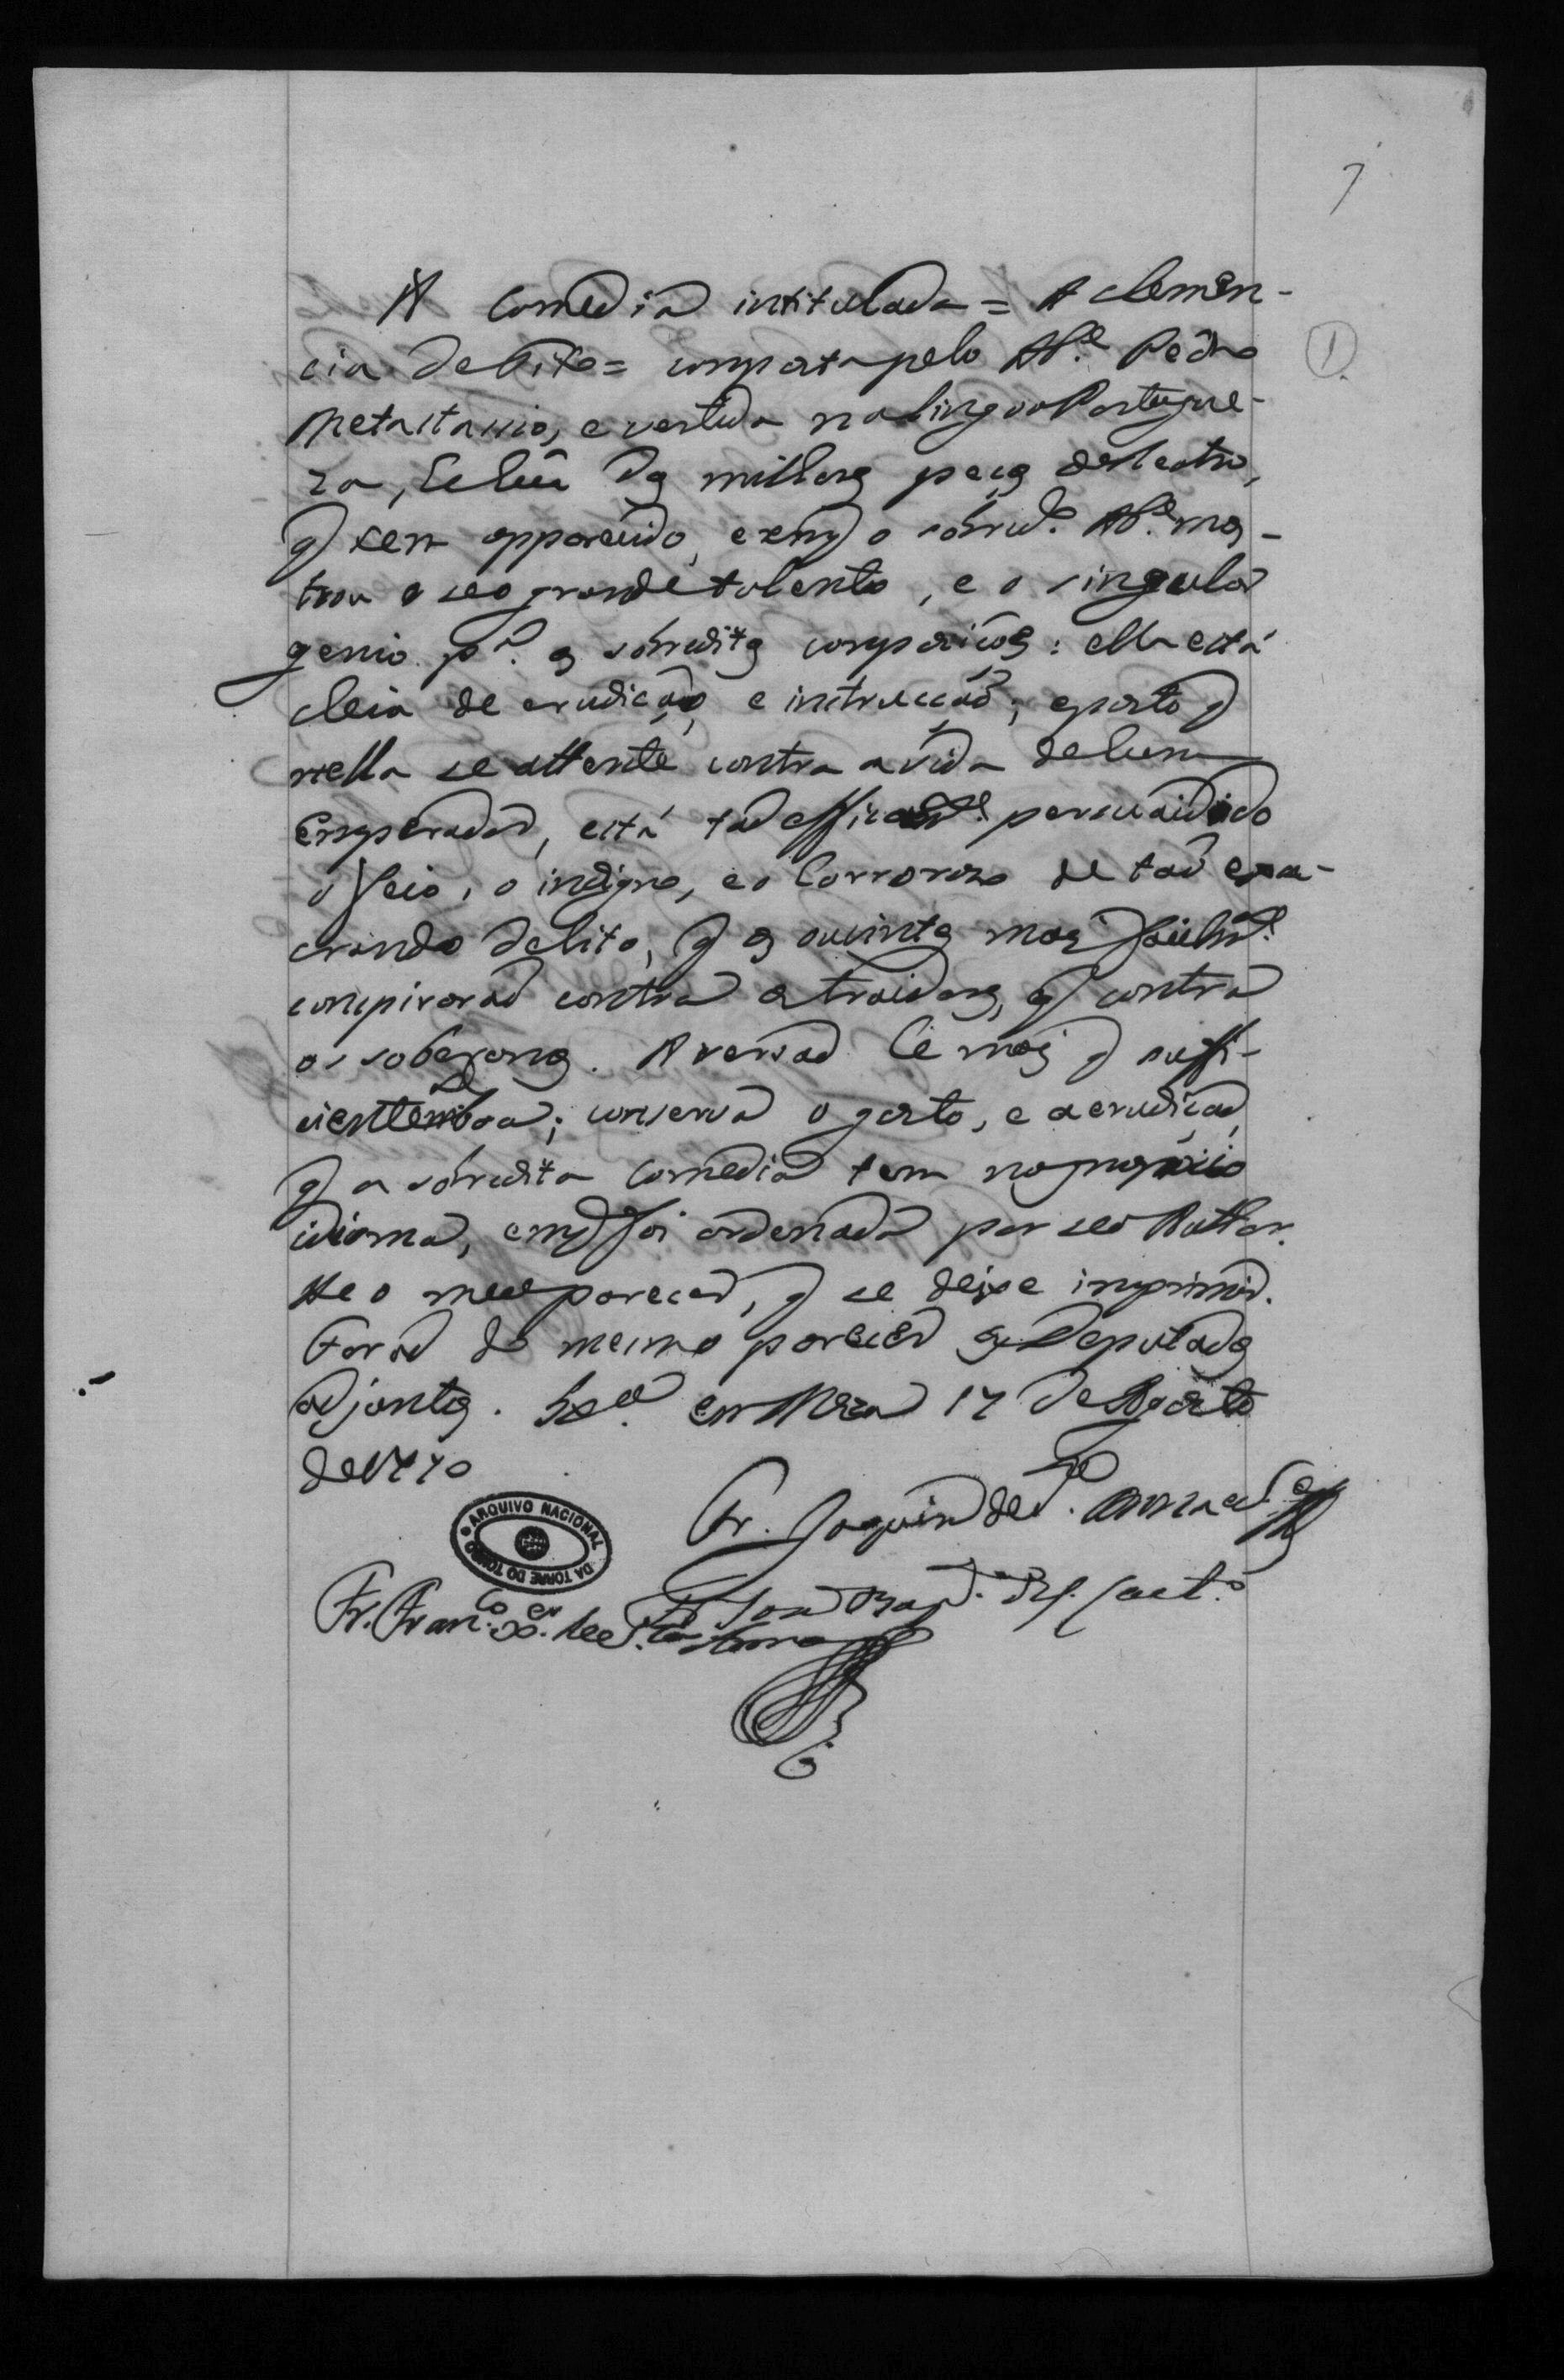 7
A Comedia intitulada = A clemen-
cia de Tito = composta pelo Ab.e Pedro
Metastassio, e vertida na lingoa Portugue-
za, he hũa das milhores peças de theatro,
q tem apparecido, e em q o sobred.o Ab.e mos-
trou o seo grande talento, e o singular
genio p.a as sobreditas composiçoẽs: ella está
cheia de erudicaõ, e instrucçaõ; e posto q
nella se attente contra a vida de hum
Emperador, está taõ efficasm.te persuadido
o feio, o indigno, e o horrorozo de taõ exe-
crando delito, q os ouvintes mais facilm.te
conspiraraõ contra os traidores, q contra
os soberanos. A versaõ he mais q suffi-
cientem.te boa; conserva o gosto, e a erudicaõ,
q a sobredita Comedia tem no proprio
idioma, em q foi ordenada por seo Author.
He o meu parecer, q se deixe imprimir.
Foraõ do mesmo parecer os Deputados
adjuntos. Lx.a em Meza 17 de Agosto
de 1770
Fr. Joaquim de S. Anna e S.a
Fr. Fran.co X.er de S.ta Anna
Fr. Joaõ Bap.ta de S. Caet.o
1
ARQUIVO NACIONAL DA TORRE DO TOMBO